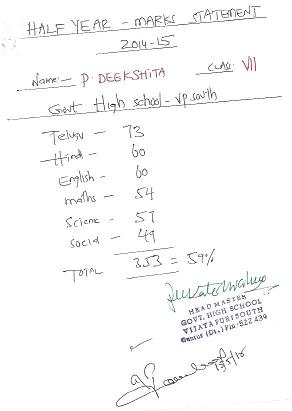 HALF YEAR - MARKS STATEMENT
2014-15
Name:- P. DEEKSHITA CLASS: VII
Govt High school - vp south
Telugu - 73
Hindi - 60
English - 60
maths - 54
Scienc - 57
social - 49
TOTAL 353 = 59%
HEAD MASTER
GOVT. HIGH SCHOOL
VIJAYAPURI SOUTH
Guntur (Dt.) Pin:522 439